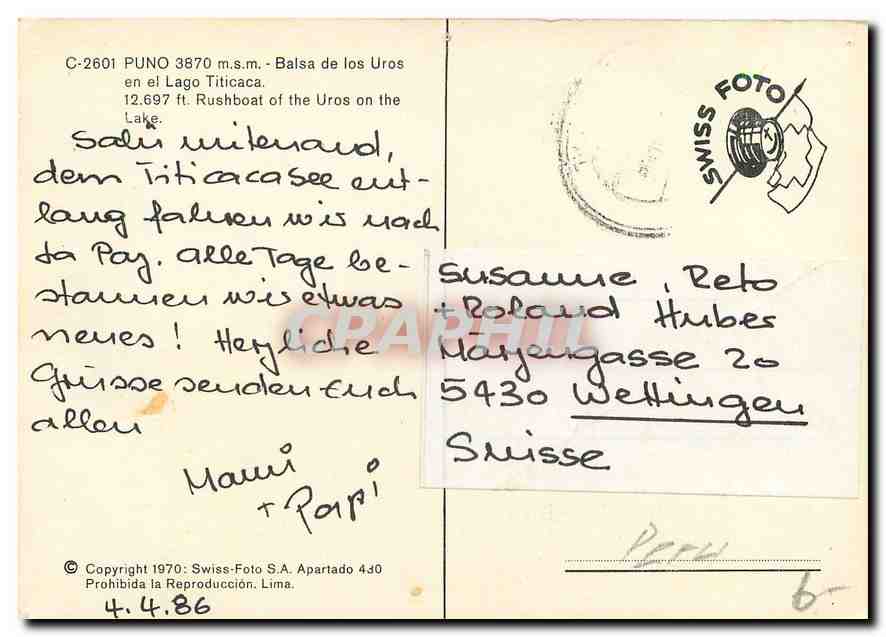 C-2601 PUNO 3870 m.s.m. - Balsa de los Uros
en el Lago Titicaca.
12.697 ft. Rushboat of the Uros on the
Lake.
Salü mitenand,
dem Titicacasee ent-
lang fahren wir nach
La Paz. Alle Tage be-
stannen wir etwas
neues! Herzliche
Grüsse senden Euch
allen
Mami
+ Papi
© Copyright 1970: Swiss-Foto S.A. Apartado 430
Prohibida la Reproducción. Lima.
4.4.86
SWISS FOTO
Susanne, Reto
+ Roland Huber
Märzengasse 20
5430 Wettingen
Suisse
CPAPHIL
Peru
6-